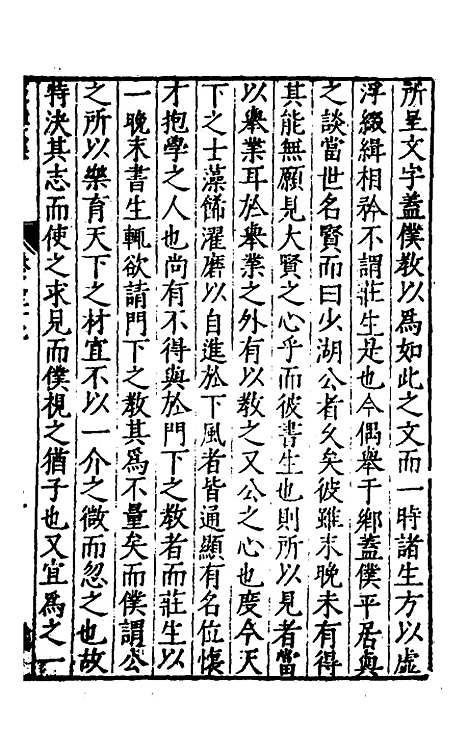 所呈文字蓋僕敎以爲如此之文而一時諸生方以虛
浮綴緝相衿不謂莊生是也今偶舉于鄉蓋僕平居與
之談當世名賢而曰少湖公者久矣彼雖末晚未有得
其能無願見大賢之心乎而彼書生也則所以見者當
以舉業耳於舉業之外有以敎之又公之心也度今天
下之士藻餙濯磨以自進於下風者皆通顯有名位懷
才抱學之人也尚有不得與於門下之敎者而莊生以
一晚末書生輒欲請門下之敎其爲不量矣而僕謂公
之所以樂育天下之材宜不以一介之微而忽之也故
特決其志而使之求見而僕視之猶子也又宜爲之一